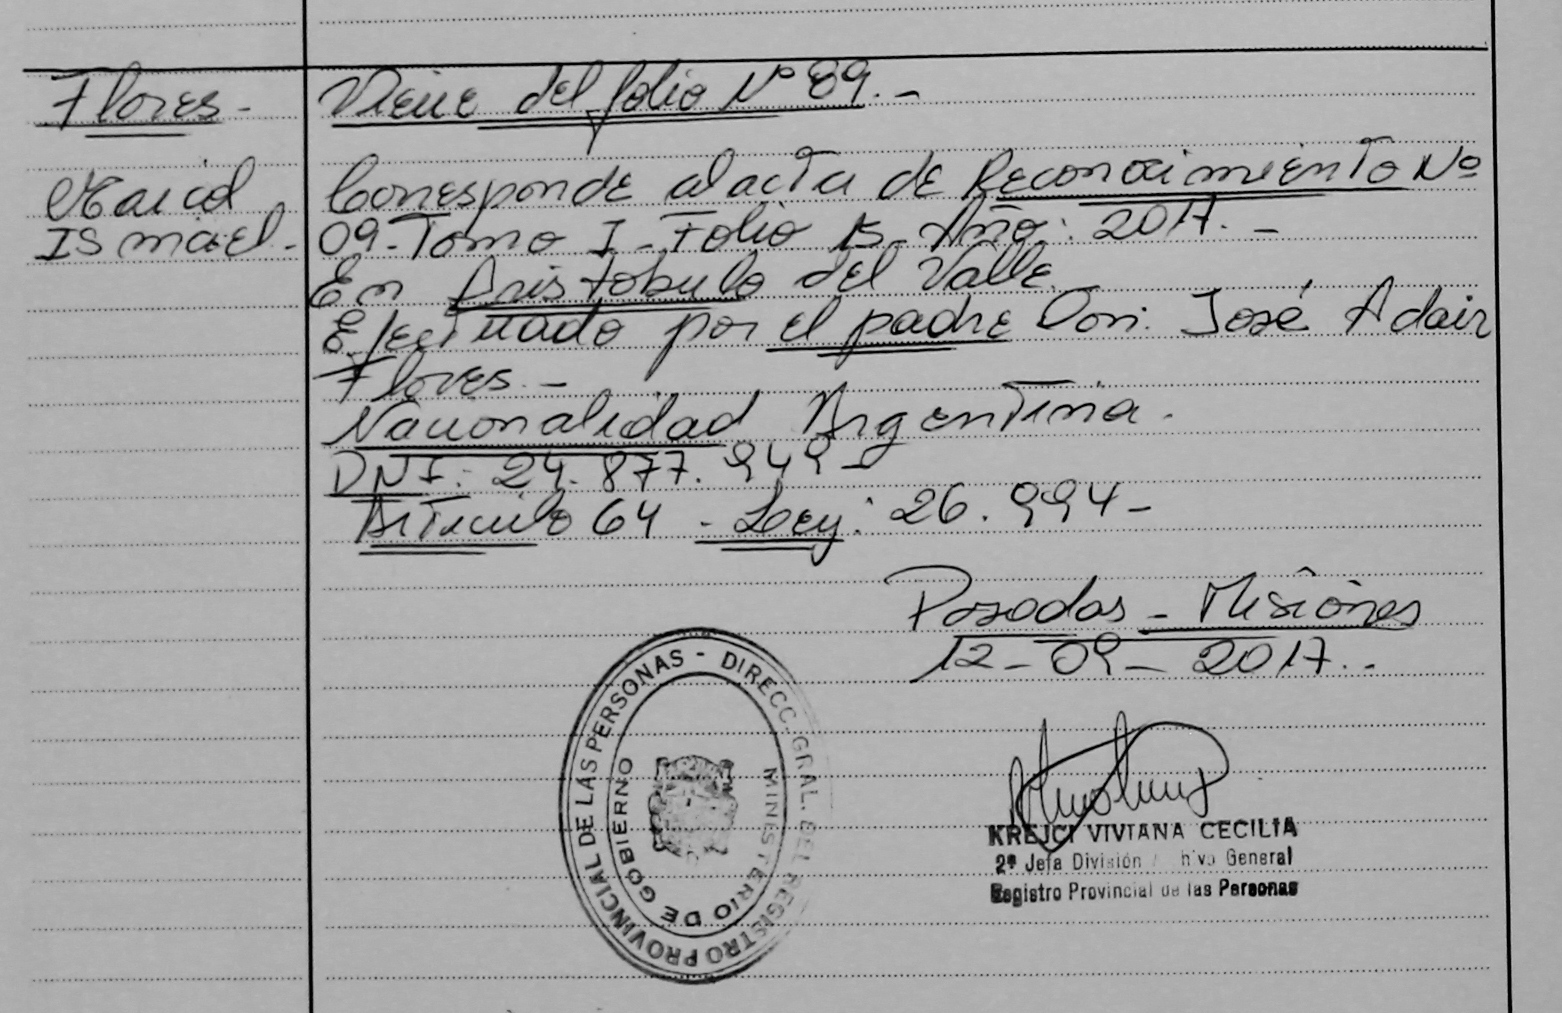 Flores -
Maicol
Ismael -
Viene del folio Nº 89. -
Corresponde al acta de Reconocimiento Nº
09 - Tomo I - Folio 15 - Año: 2017. -
En Aristobulo del Valle.
Efectuado por el padre Don: José Adair
Flores. -
Nacionalidad Argentina.
DNI: 24.877.949 -
Articulo 64 - Ley: 26.994 -
Posadas - Misiones
12 - 09 - 2017. -
DIRECC. GRAL. DEL REGISTRO PROVINCIAL DE LAS PERSONAS -
MINISTERIO DE GOBIERNO
KREJCI VIVIANA CECILIA
2ª Jefa División Archivo General
Registro Provincial de las Personas